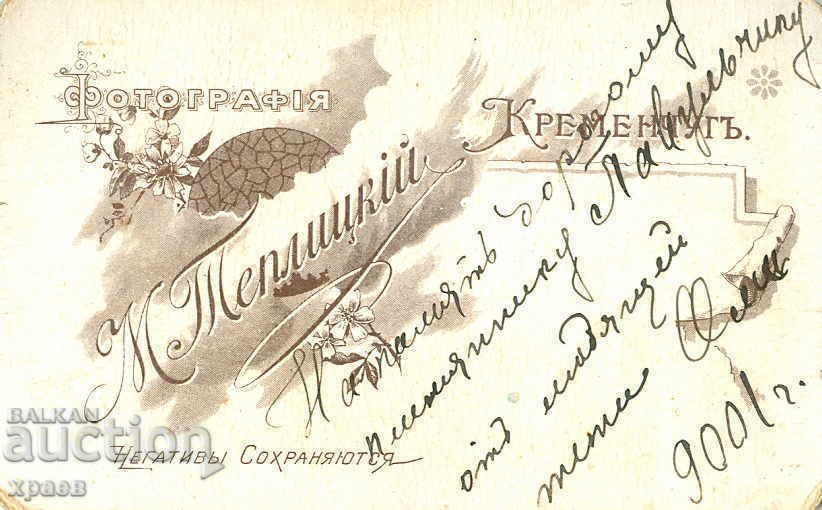 Фотографія
Кременчугъ.
М Теплицкій
Негативы Сохраняются
На память дорогому
племяннику
отъ любящей
тети Оли
1г.
BALKAN
auction
храев